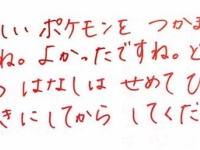 しい ポケモンを つかま
ね。よかったですね。ど
つ はなしは せめて ひ
きにしてから してくだ